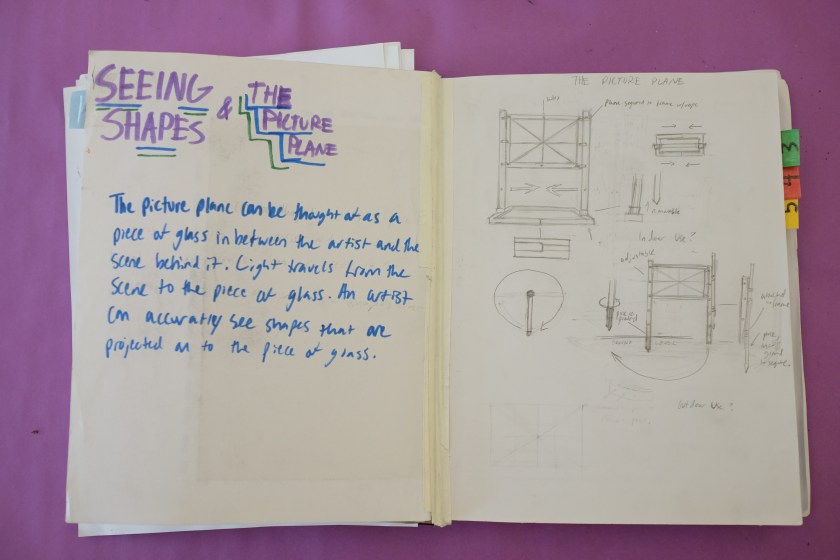 SEEING
SHAPES
& THE
PICTURE
PLANE
The picture plane can be thought of as a
piece of glass in between the artist and the
scene behind it. Light travels from the
scene to the piece of glass. An artist
can accuratly see shapes that are
projected on to the piece of glass.
THE PICTURE PLANE
movable
Indoor Use?
adjustable
Outdoor Use?
3
4
5